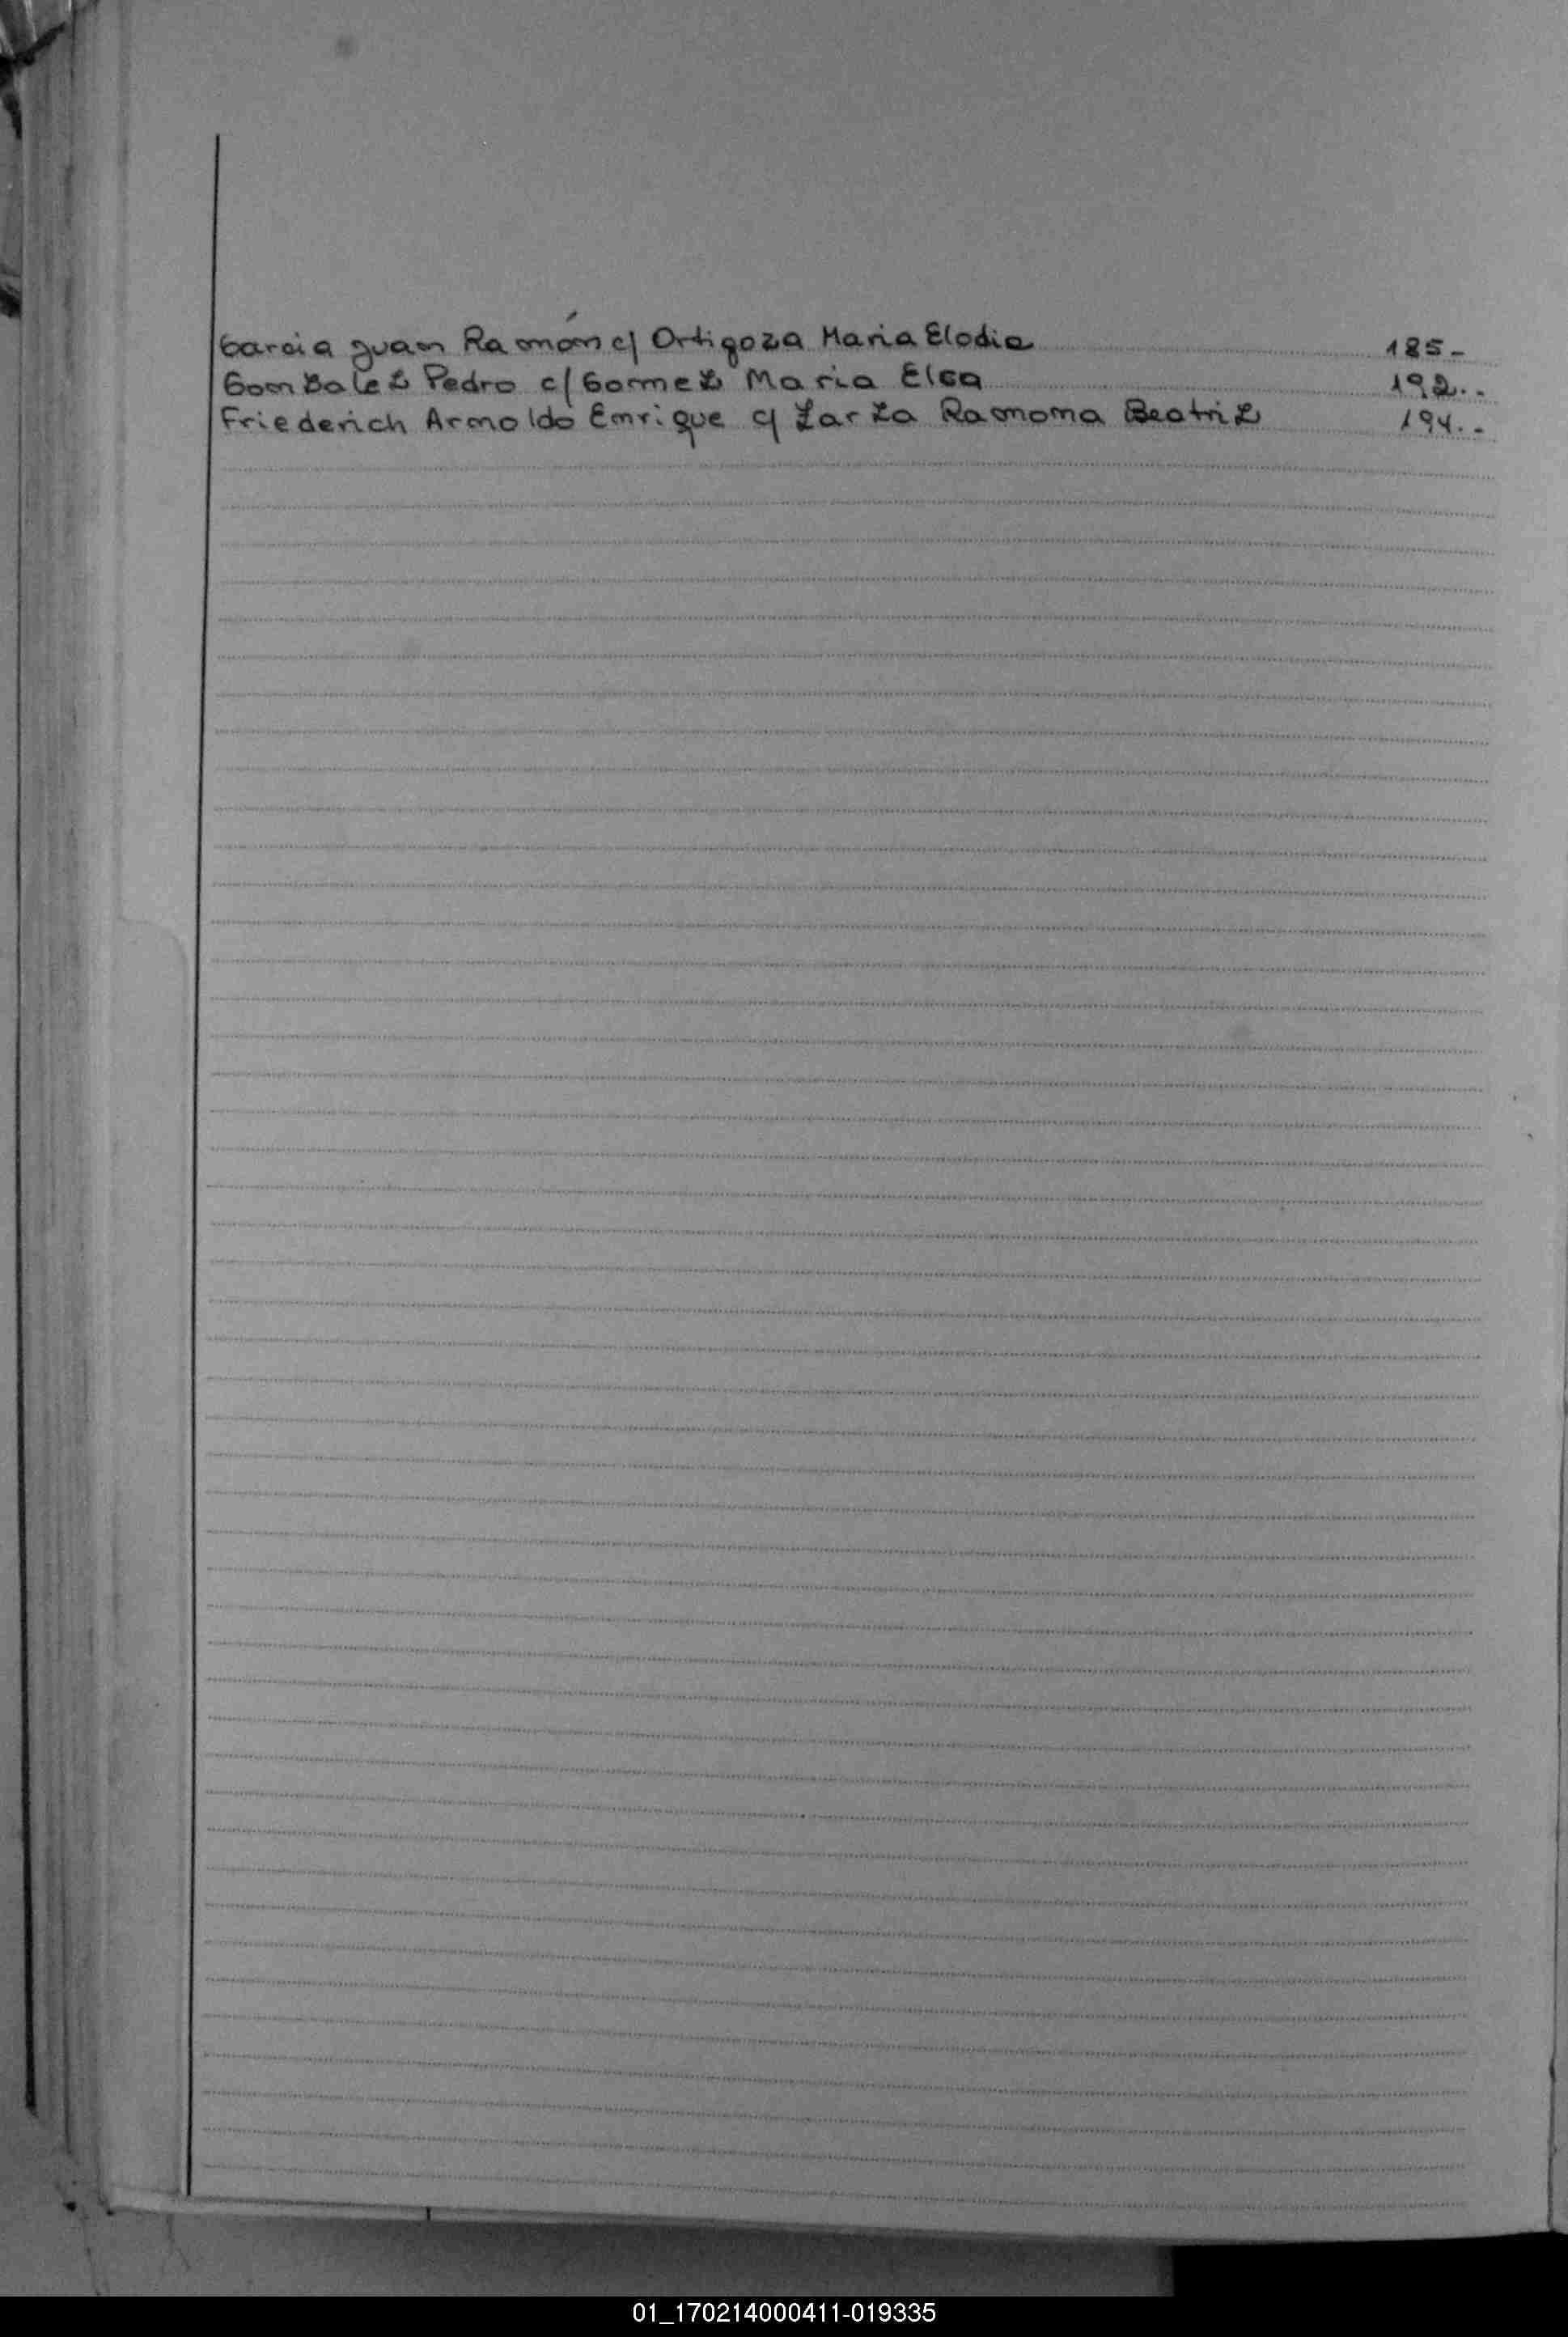 Garcia Juan Ramón c/ Ortigoza Maria Elodia 185-
Gonzalez Pedro c/ Gomez Maria Elsa 192..
Friederich Arnoldo Enrique c/ Zarza Ramona Beatriz 194..
01_170214000411-019335